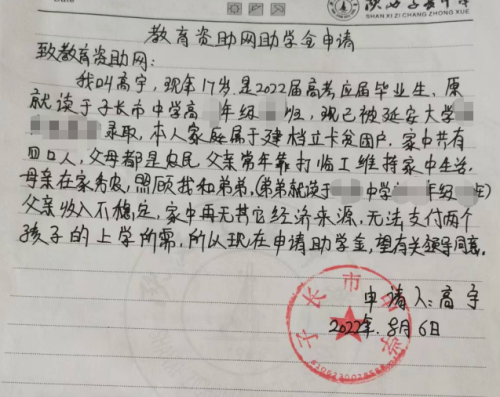 Date
陕西子长中学
SHAN XI ZI CHANG ZHONG XUE
教育资助网助学金申请
致教育资助网：
我叫高宇，现年17岁是2022届高考应届毕业生，原
就读于子长市中学高 年级 班，现已被延安大学
录取，本人家庭属于建档立卡贫困户，家中共有
四口人，父母都是农民，父亲常年靠打临工维持家中生活，
母亲在家务农，照顾我和弟弟，（弟弟就读于 中学 年级 ）
父亲收入不稳定，家中再无其它经济来源，无法支付两个
孩子的上学所需，所以现在申请助学金，望有关领导同意。
申请人：高宇
2022年8月6日
子长市中学